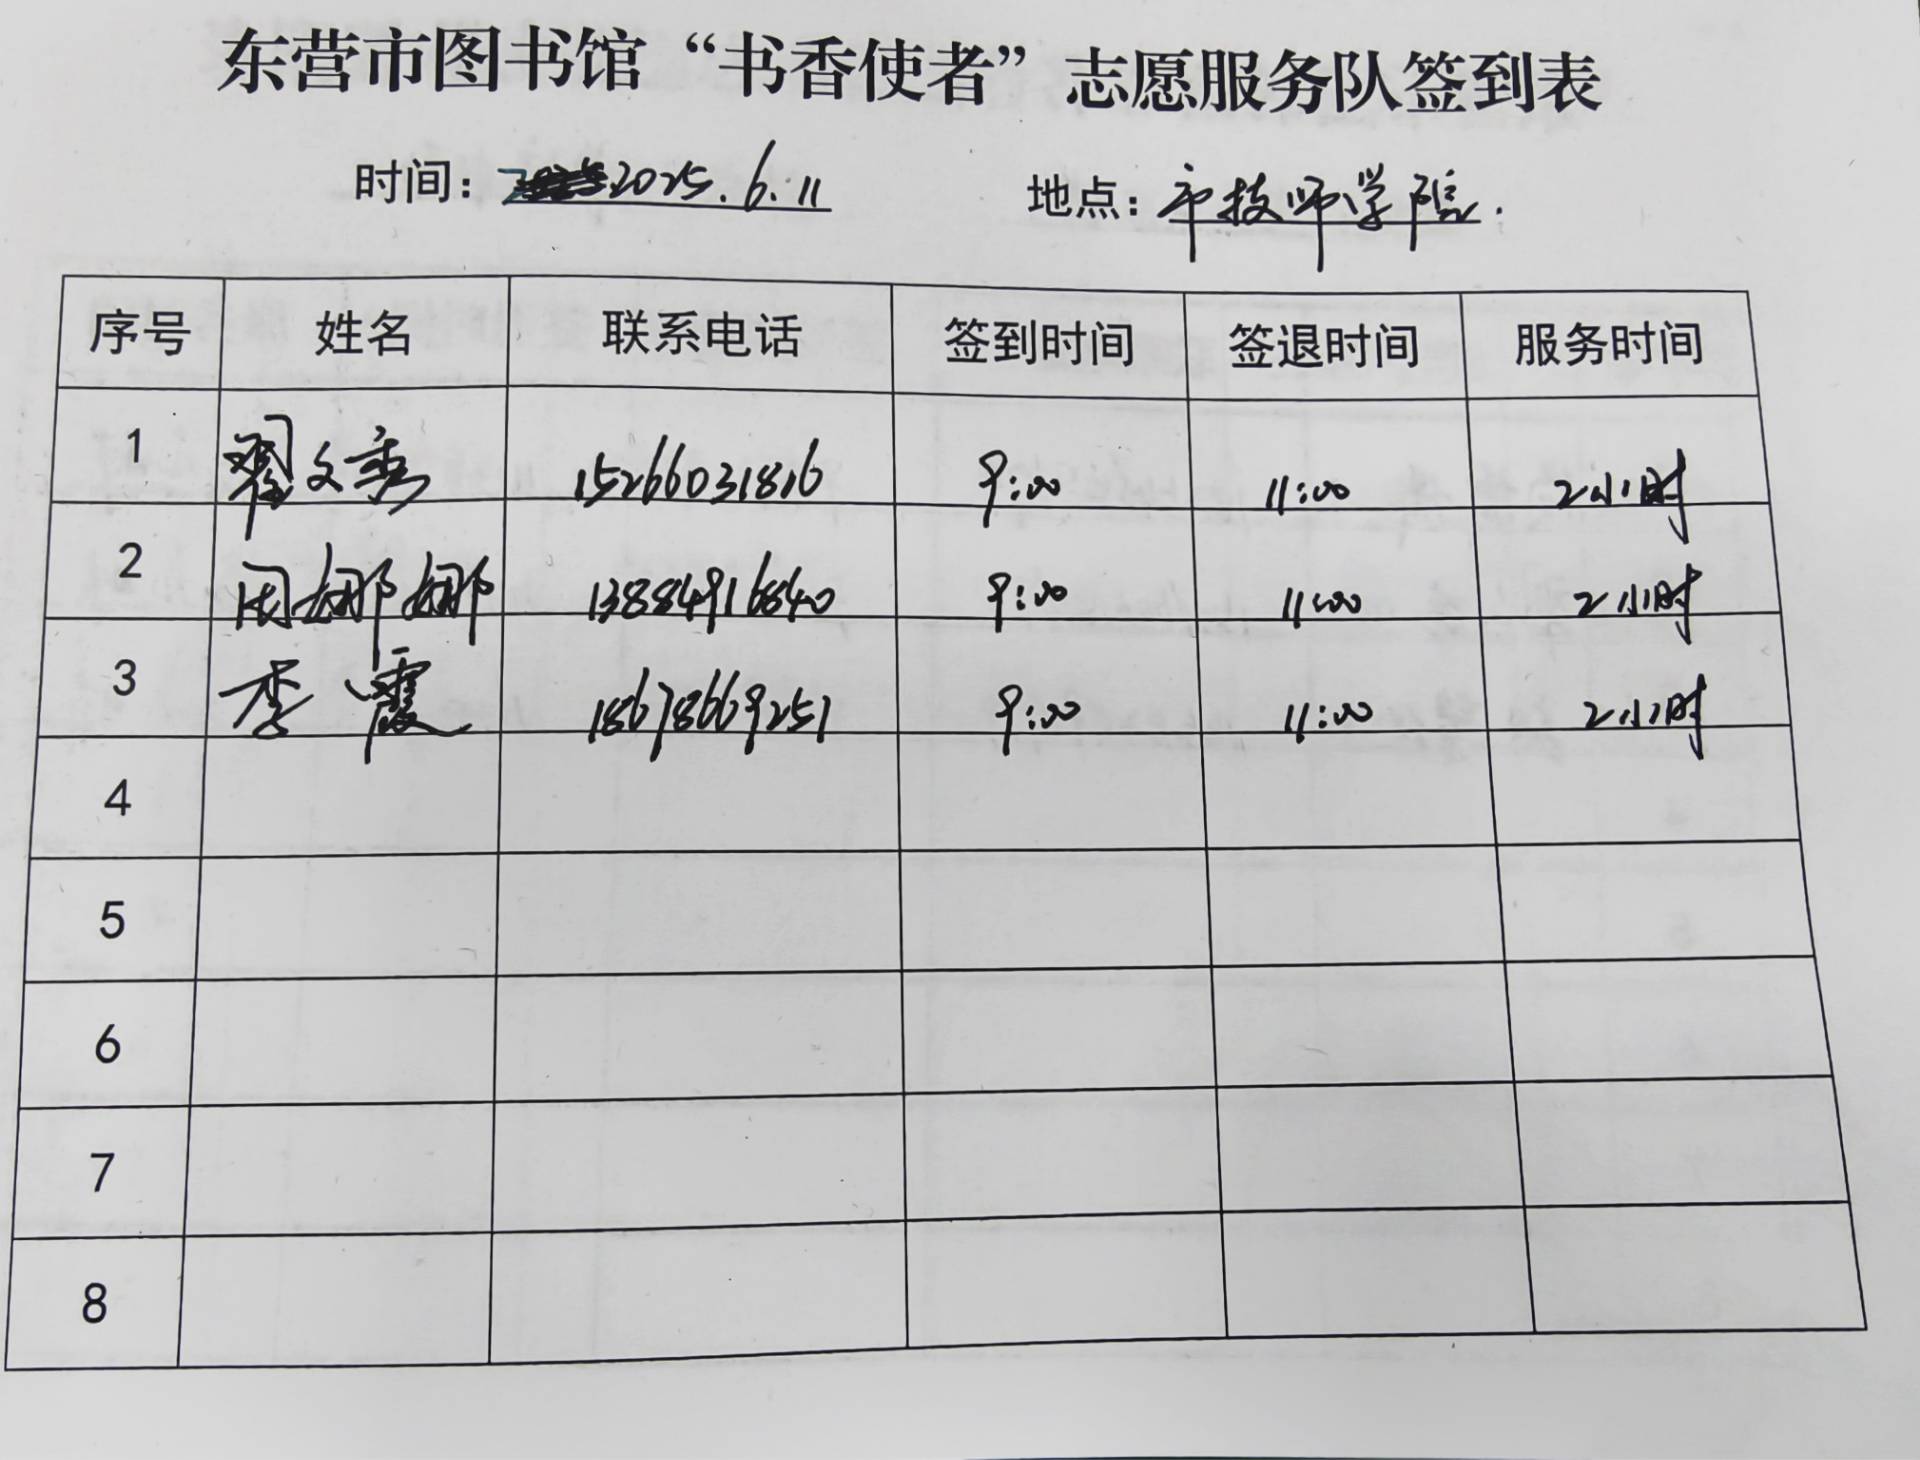 东营市图书馆“书香使者”志愿服务队签到表
时间：2025.6.11 地点：市技师学院.
序号 姓名 联系电话 签到时间 签退时间 服务时间
1 翟文秀 15266031816 9:00 11:00 2小时
2 周娜娜 13884916840 9:00 11:00 2小时
3 李霞 18678669251 9:00 11:00 2小时
4
5
6
7
8